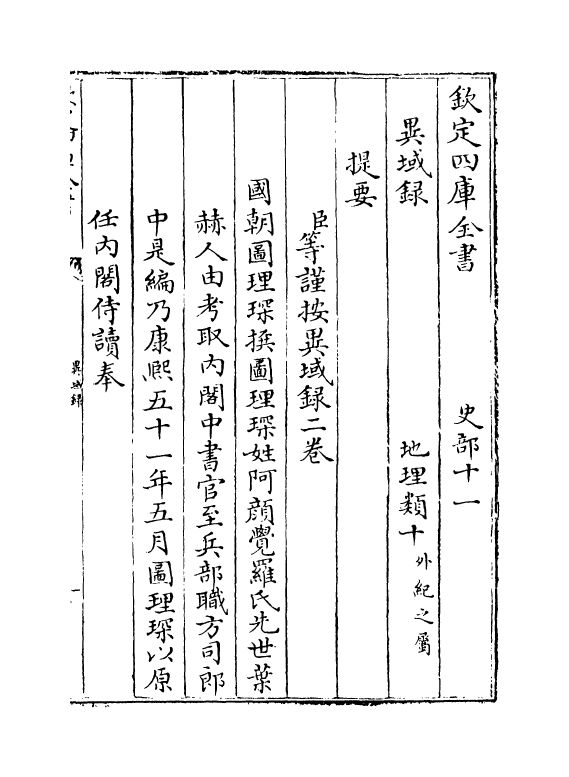 欽定四庫全書　史部十一
異域録　地理類十　外紀之屬
提要
臣等謹按異域録二卷
國朝圖理琛撰圖理琛姓阿顔覺羅氏先世葉
赫人由考取内閣中書官至兵部職方司郎
中是編乃康熙五十一年五月圖理琛以原
任内閣侍讀奉
異域録
一